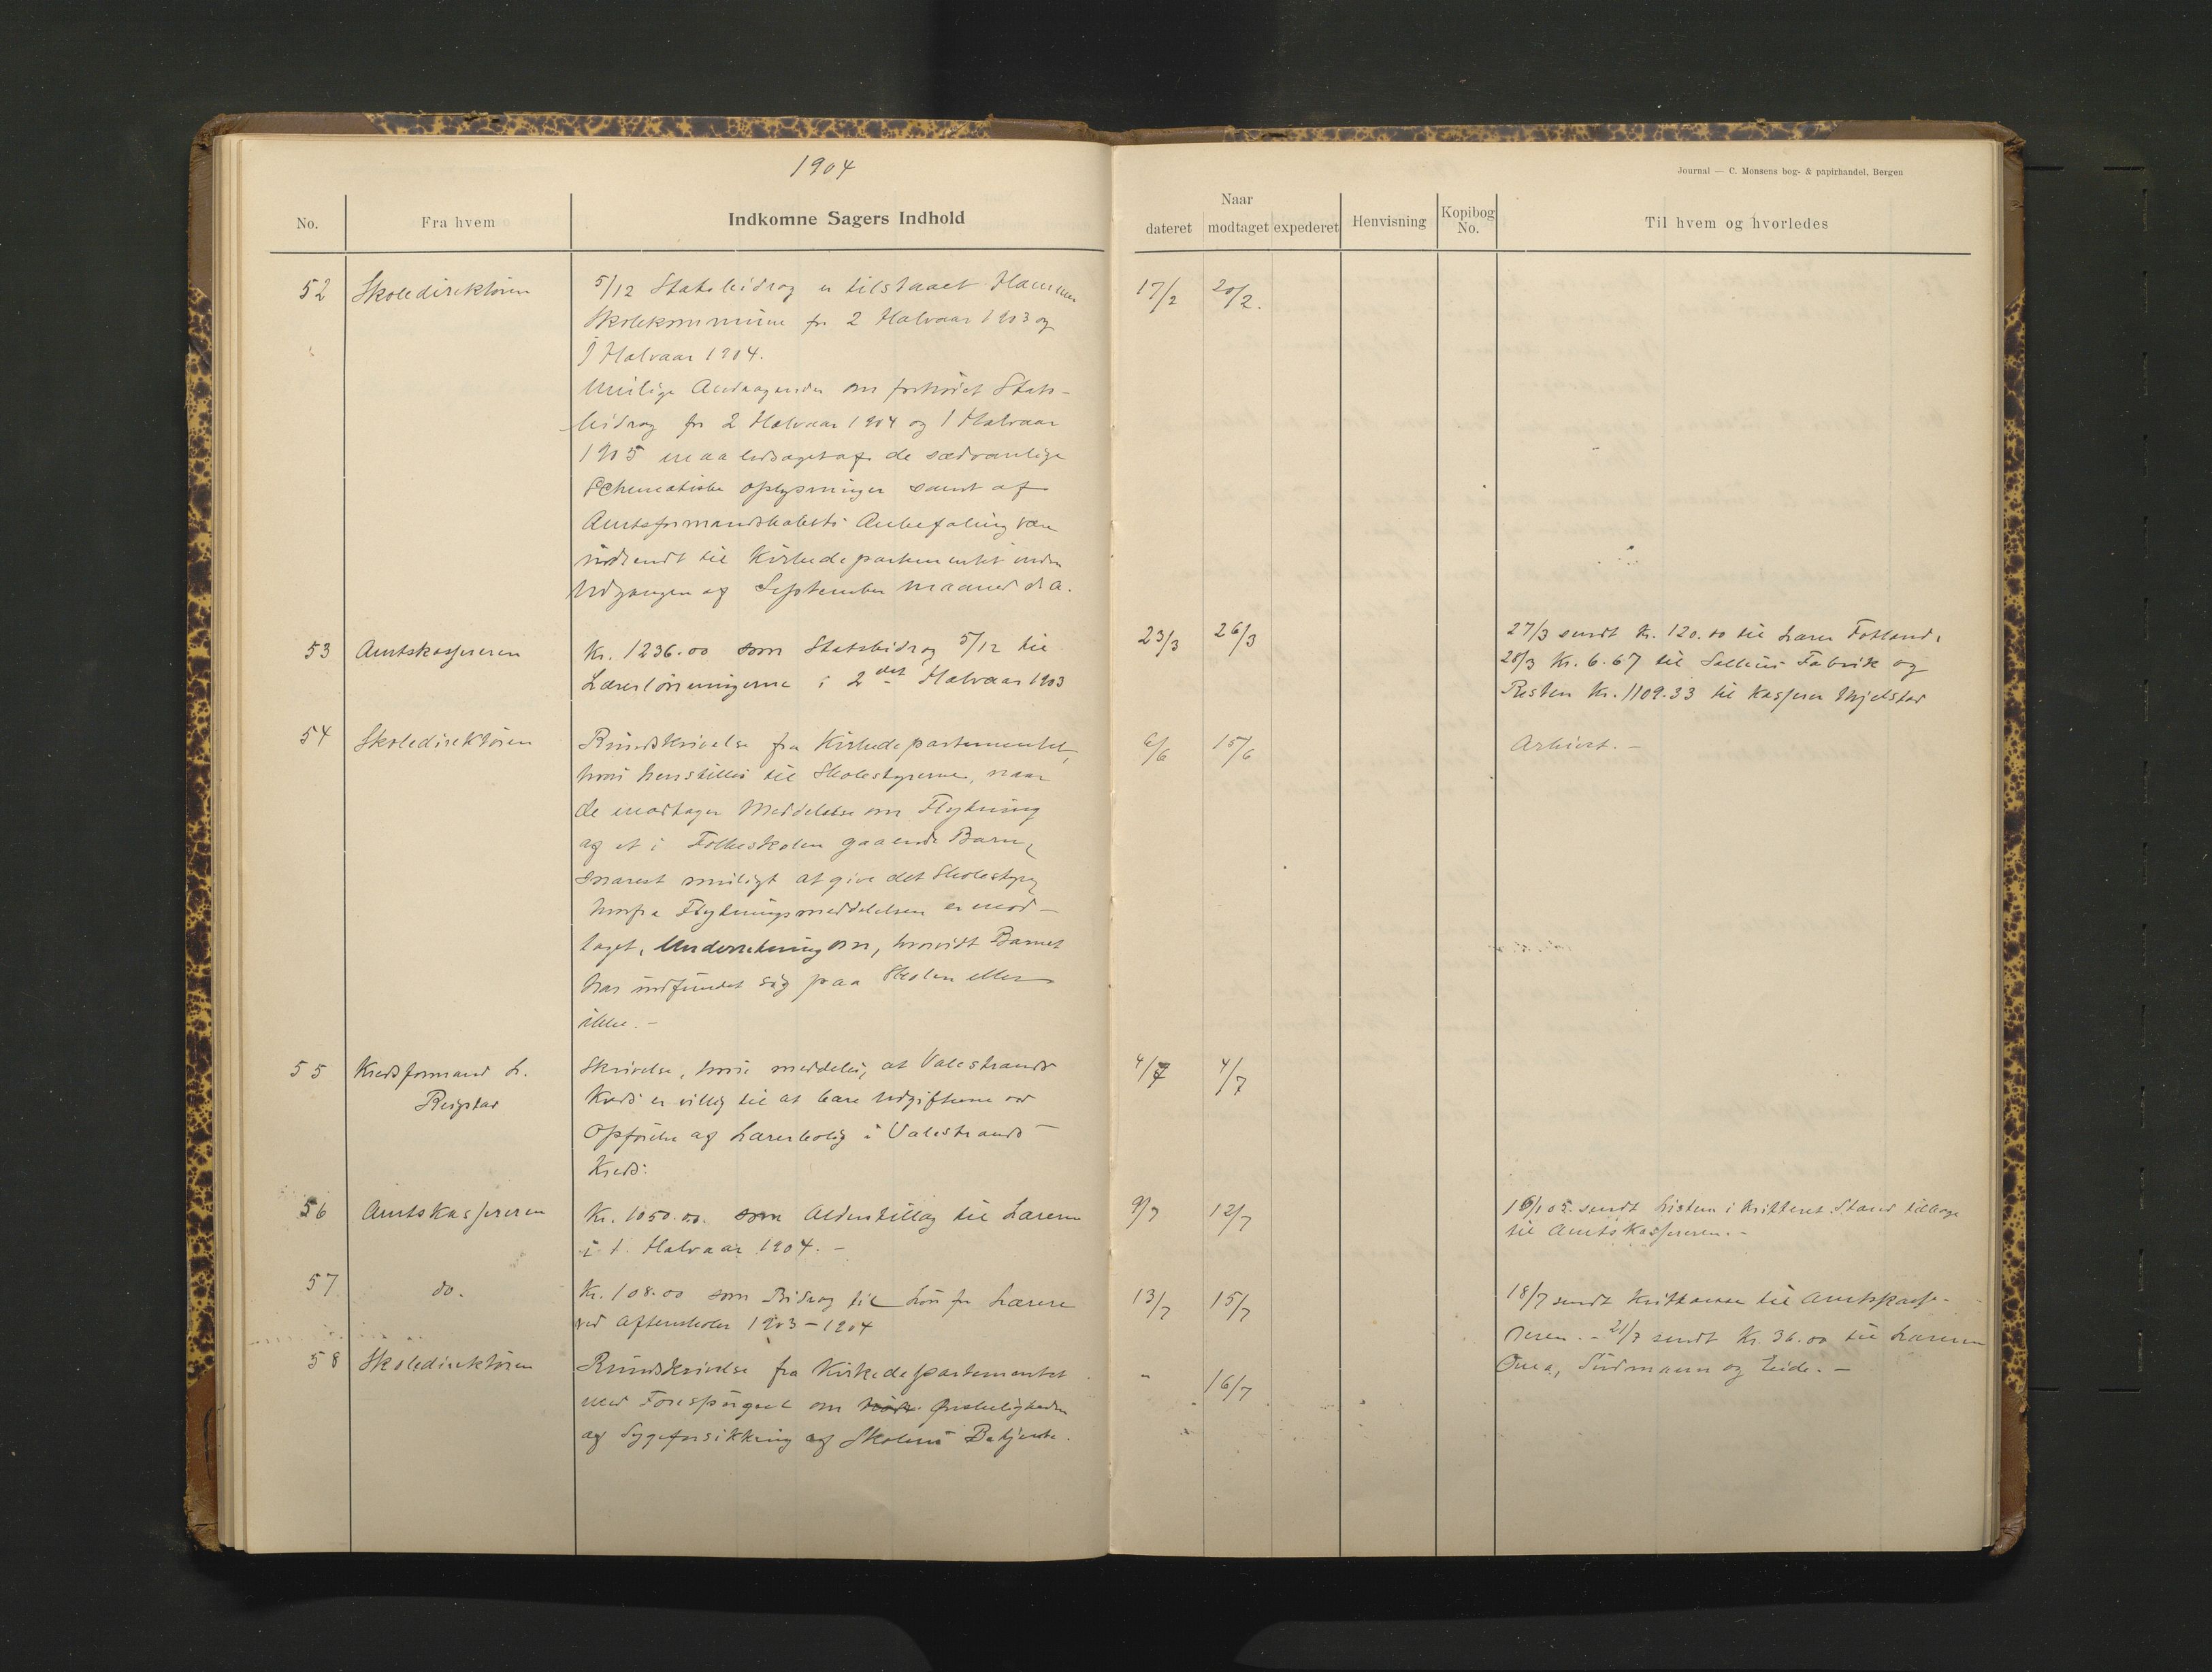 1904
Journal — C. Monsens bog- & papirhandel, Bergen
No.
Fra hvem
Indkomne Sagers Indhold
Naar
dateret
modtaget
expederet
Henvisning
Kopibog No.
Til hvem og hvorledes
52 Skoledirektøren 5/12 Statsbidrag er tilstaaet Hammer 17/2 20/2.
Skolekommune for 2 Halvaar 1903 og
1 Halvaar 1904.
Mulige Andragender om forhøiet Stats-
bidrag for 2 Halvaar 1904 og 1 Halvaar
1905 maa ledsaget af de sædvanlige
schematiske Oplysninger samt af
Amtsformandskabets Anbefaling være
indsendt til Kirkedepartementet inden
Udgangen af September Maaned d. A.
53 Amtskassereren Kr. 1236.00 som Statsbidrag 5/12 til 23/3 26/3 27/3 sendt Kr. 120.00 til Lærer Fotland,
Lærerlønningerne i 2det Halvaar 1903 28/3 Kr. 6.67 til Fabrik og
Resten Kr. 1109.33 til Kasserer Mjelstad
54 Skoledirektøren Rundskrivelse fra Kirkedepartementet, 6/6 15/6 Arkivet. -
hvori henstilles til Skolestyrerne, naar
de modtager Meddelelse om Flytning
af et i Folkeskolen gaaende Barn,
snarest muligt at give det Skolestyre,
hvorfra Flytningsmeddelelsen er mod-
taget, Underretning om, hvorvidt Barnet
har indfundet sig paa Skolen eller
ikke. -
55 Kredsformand L. Skrivelse, hvori meddeles, at Valestrands 4/7 4/7
Reigstad Kreds er villig til at bære Udgifterne ved
Opførelse af Lærerbolig i Valestrands
Kreds.
56 Amtskassereren Kr. 1050.00. som Alderstillæg til Lærerne 9/7 12/7 16/1 05. sendt Listen i kvitteret Stand tilbage
i 1. Halvaar 1904. - til Amtskassereren. -
57 do. Kr. 108.00 som Bidrag til Løn for Lærere 13/7 15/7 18/7 sendt Kvittering til Amtskasse-
ved Aftenskoler 1903-1904 reren. - 21/7 sendt Kr. 36.00 til Lærerne
58 Skoledirektøren Rundskrivelse fra Kirkedepartementet " 16/7 Sudmann og Eide. -
med Forespørgsel om Ønskeligheden
af Sygeforsikring af Skolens Betjente.